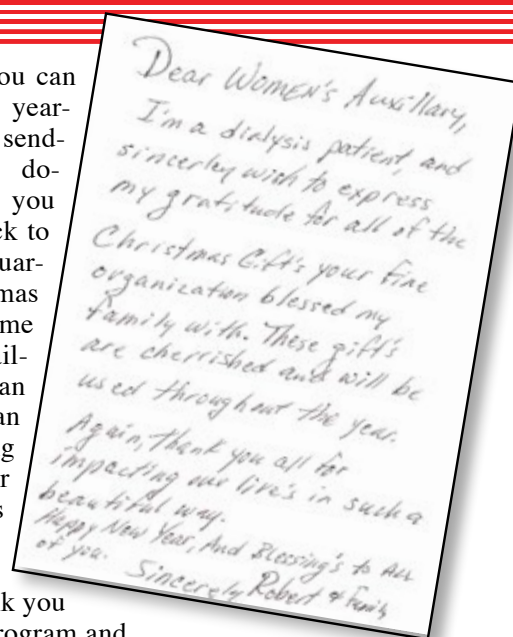 ou can
year-
send-
do-
you
ck to
uar-
mas
ome
ail-
an
an
g
r
s
k you
rogram and
Dear Women's Auxillary,
I'm a dialysis patient, and
sincerley wish to express
my gratitude for all of the
Christmas Gift's your fine
organization blessed my
family with. These gift's
are cherrished and will be
used throughout the year.
Again, thank you all for
impacting our live's in such a
beautiful way.
Happy New Year, And Blessing's to All
of you.
Sincerely Robert & Family